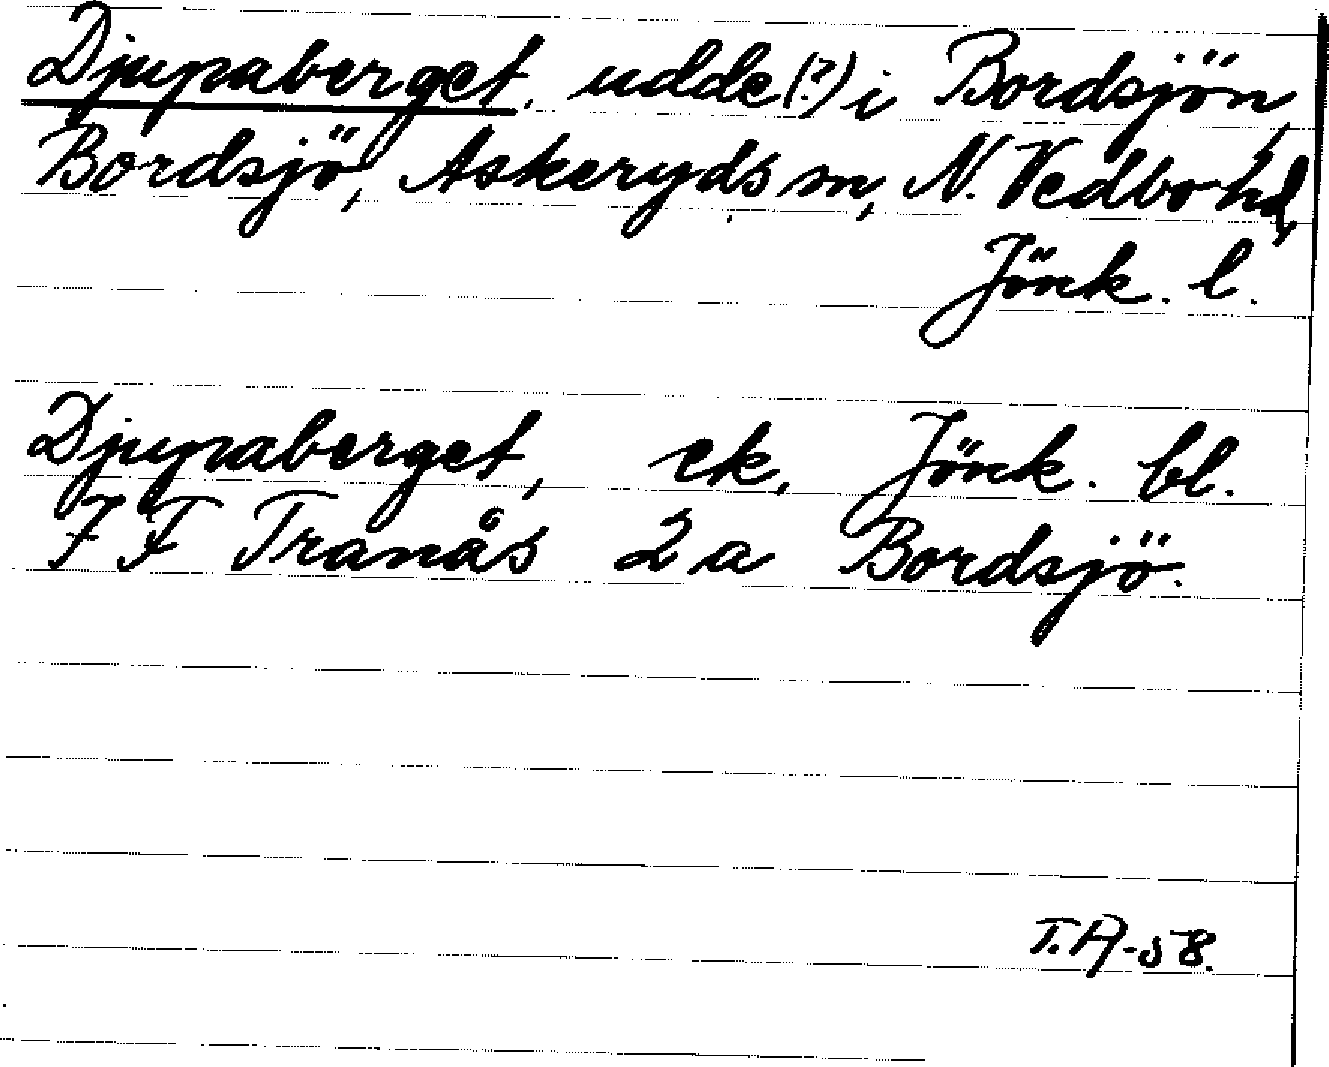 Djupaberget, udde(?) i Bordsjön,
Bordsjö, Askeryds sn, N. Vedbo hd,
Jönk. l.
Djupaberget, ek, Jönk. bl.
7 F Tranås 2 a Bordsjö.
T.A-58.